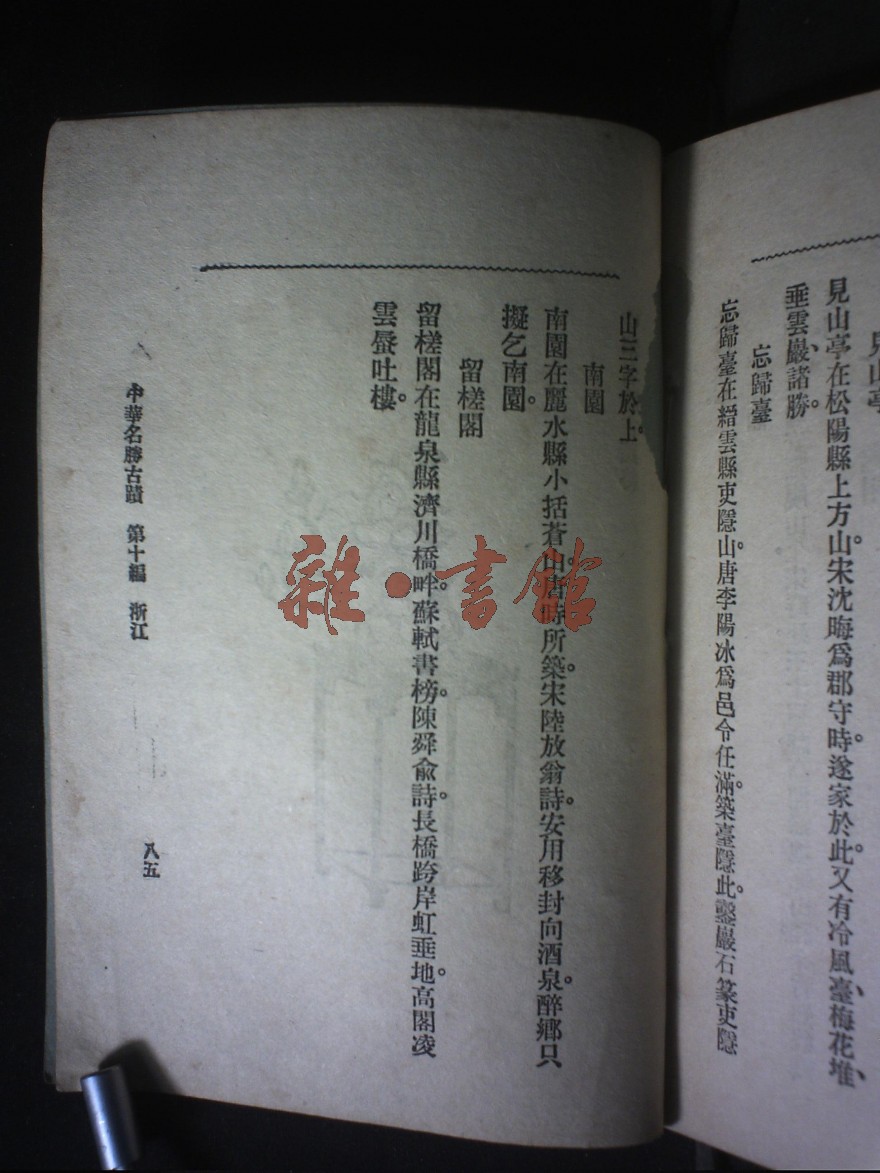 見山亭
見山亭在松陽縣上方山。宋沈晦爲郡守時。遂家於此。又有冷風臺、梅花堆、
垂雲巖、諸勝。
忘歸臺
忘歸臺在縉雲縣吏隱山。唐李陽冰爲邑令。任滿。築臺隱此。鑿巖石篆吏隱
山三字於上。
南園
南園在麗水縣小括蒼山。唐時所築。宋陸放翁詩。安用移封向酒泉。醉鄉只
擬乞南園。
留槎閣
留槎閣在龍泉縣濟川橋畔。蘇軾書榜。陳舜兪詩。長橋跨岸虹垂地。高閣凌
雲蜃吐樓。
中華名勝古蹟 第十編 浙江
八五
雜·書館